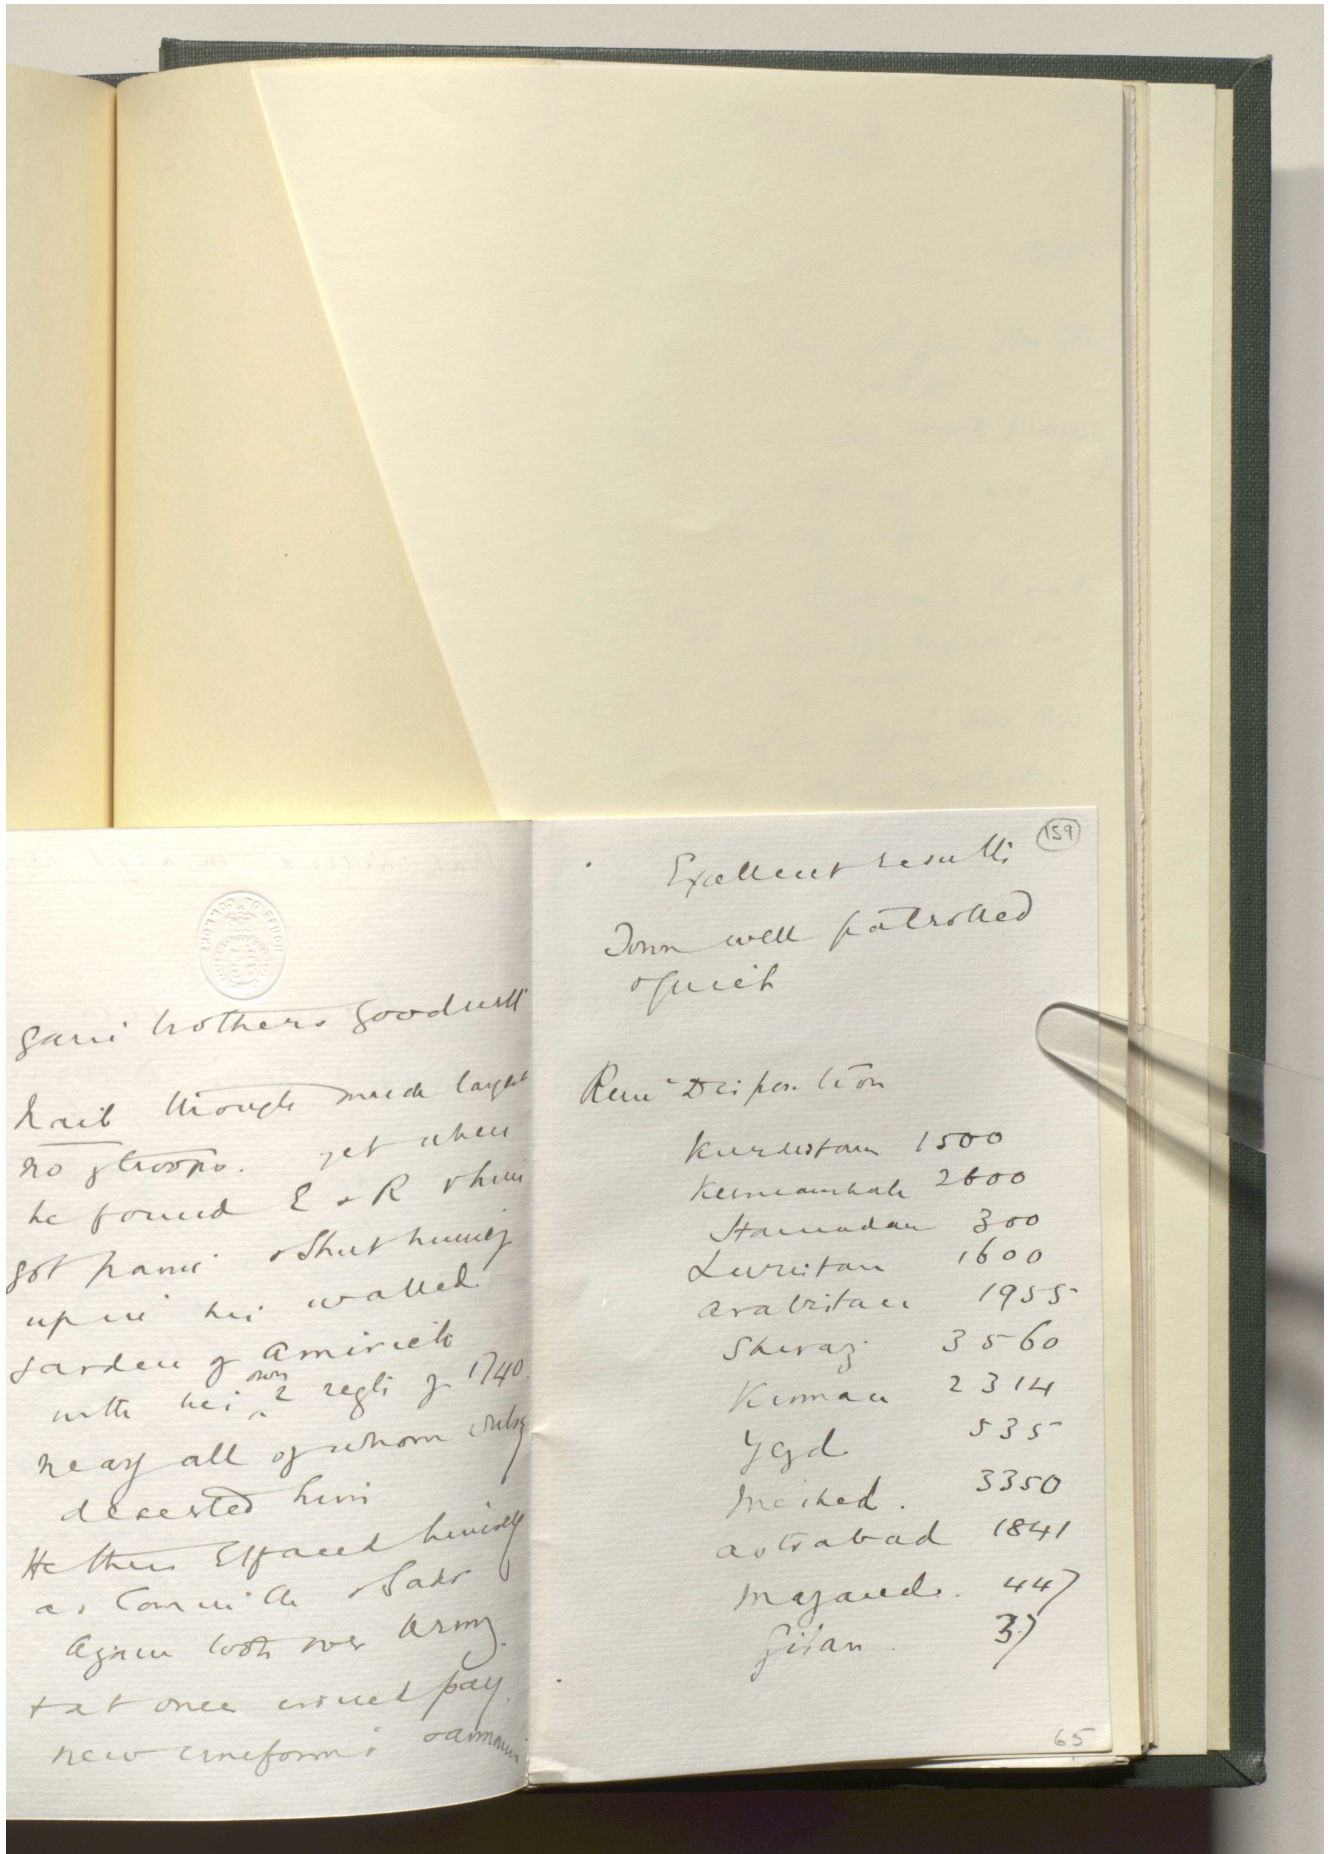 HOUSE OF COMMONS
gain brothers goodwill
Naib though made large
no of troops. yet when
he found E & R & him
got panic & Shut himself
up in his walled
garden of Amirieh
with his own 2 regts of 1740
nearly all of whom
deserted him
He then Effaced himself
as Com in Ch & Sadr
Again took over Army
& at once issued pay
new uniforms
159
Excellent results
Town well patrolled
& quiet
Disposition
Kurdistan 1500
Kermanshah 2600
Hamadan 300
Luristan 1600
Arabistan 1955
Shiraz 3560
Kirman 2314
Yezd 535
Meshed. 3350
Astrabad 1841
Mazand. 447
Gilan 37
65